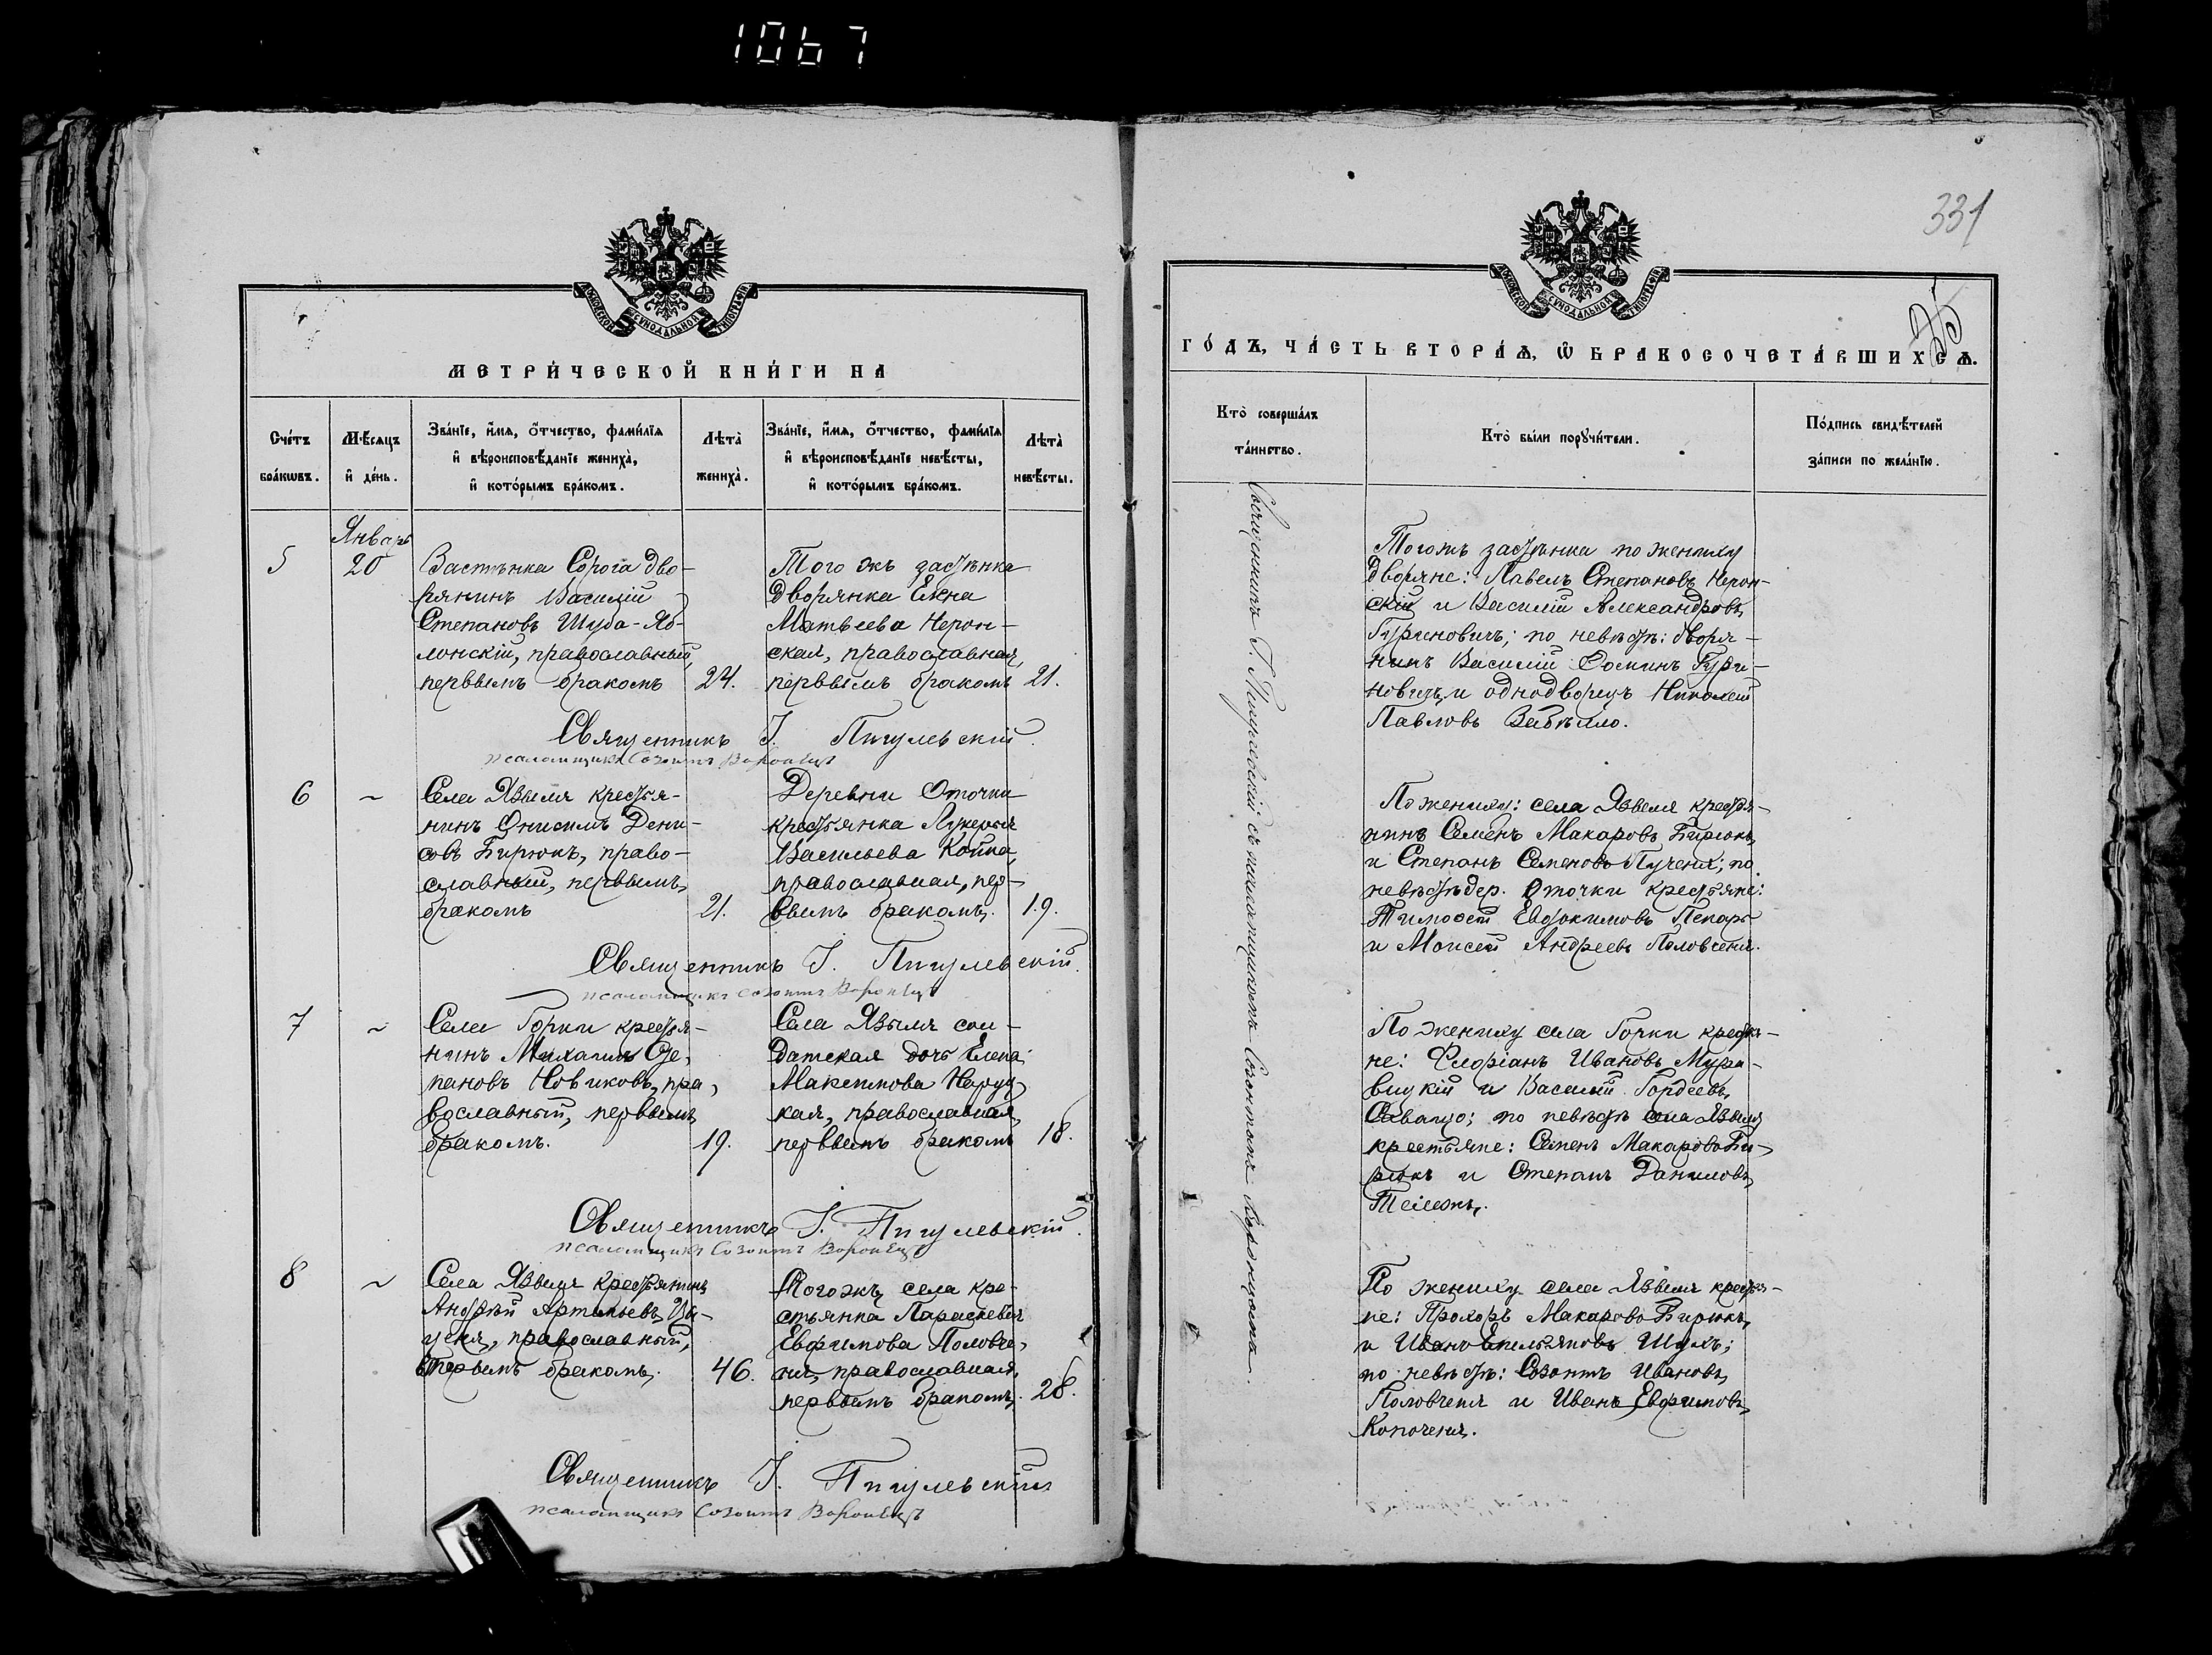 1067
МЕТРИ́ЧЕСКОЙ КНИ́ГИ НА
Сче́тъ бра́кѡвъ.
Мѣ́сяцъ и҆ де́нь.
Зва́нїе, и҆́мѧ, ѻ҆́тчество, фами́лїѧ и҆ вѣроисповѣ́данїе жениха̀, и҆ кото́рымъ бра́комъ.
Лѣта̀ жениха̀.
Зва́нїе, и҆́мѧ, ѻ҆́тчество, фами́лїѧ и҆ вѣроисповѣ́данїе невѣ́сты, и҆ кото́рымъ бра́комъ.
Лѣта̀ невѣ́сты.
5
Январь
20
Застѣнка Сорога дво-
рянинъ Василій
Степановъ Шуба-Яб-
лонскій, православный,
первымъ бракомъ
24.
Того жъ застѣнка
дворянка Елена
Матвеева Нерон-
ская, православная,
первымъ бракомъ
21.
Священникъ І. Пигулевскій.
псаломщикъ Созонтъ Воронецъ
6
~
Села Язвыля крестья-
нинъ Онисимъ Дени-
совъ Бирюкъ, право-
славный, первымъ
бракомъ
21.
Деревни Оточки
крестьянка Лукерья
Васильева
православная, пер-
вымъ бракомъ.
19.
Священникъ І. Пигулевскій.
псаломщикъ Созонтъ Воронецъ
7
~
Села Горки крестья-
нинъ Михаилъ Сте-
пановъ Новиковъ, пра-
вославный, первымъ
бракомъ.
19.
Села Язвыля сол-
датская дочь Елена
Максимова
кая, православная,
первымъ бракомъ
18.
Священникъ І. Пигулевскій.
псаломщикъ Созонтъ Воронецъ
8
~
Села Язвыля крестьянинъ
Андрей Артемьевъ Цы-
православный,
бракомъ.
46.
Тогожъ села кре-
стьянка Параскевія
Евфимова Половче-
ня, православная,
первымъ бракомъ.
28.
Священникъ І. Пигулевскій
псаломщикъ Созонтъ Воронецъ
331
25
ГО́ДЪ, ЧА́СТЬ ВТОРА́Ѧ, Ѡ҆ БРАКОСОЧЕТА́ВШИХСѦ.
Кто̀ соверша́лъ та́инство.
Кто̀ бы́ли порꙋчи́тели.
По́дпись свидѣ́телей за́писи по жела́нїю.
Священникъ І. Пигулевскій съ псаломщикомъ Созонтомъ Воронцомъ.
Тогожъ застѣнка по жениху
дворяне: Павелъ Степановъ Нерон-
скій и Василій Александровъ
Гуриновичъ; по невѣстѣ: дворя-
нинъ Василій Ѳоминъ Гури-
новичъ и однодворецъ Николай
Павловъ
По жениху: села Язвыля крестья-
нинъ Семенъ Макаровъ Бирюкъ
и Степанъ Семеновъ Пученя; по
невѣстѣ дер. Оточки крестьяне:
Тимофей Евдокимовъ Пекарь
и Моисей Андреевъ Половченя.
По жениху села Горки крестья-
не: Флоріанъ Ивановъ Мура-
вицкій и Василій Гордеевъ
по невѣстѣ села Язвыля
крестьяне: Семенъ Макаровъ Би-
рюкъ и Степанъ Даниловъ
По жениху села Язвыля крестья-
не: Прохоръ Макаровъ Бирюкъ
и Иванъ Емельяновъ
по невѣстѣ: Созонтъ Ивановъ
Половченя и Иванъ Евфимовъ
Копоченя.